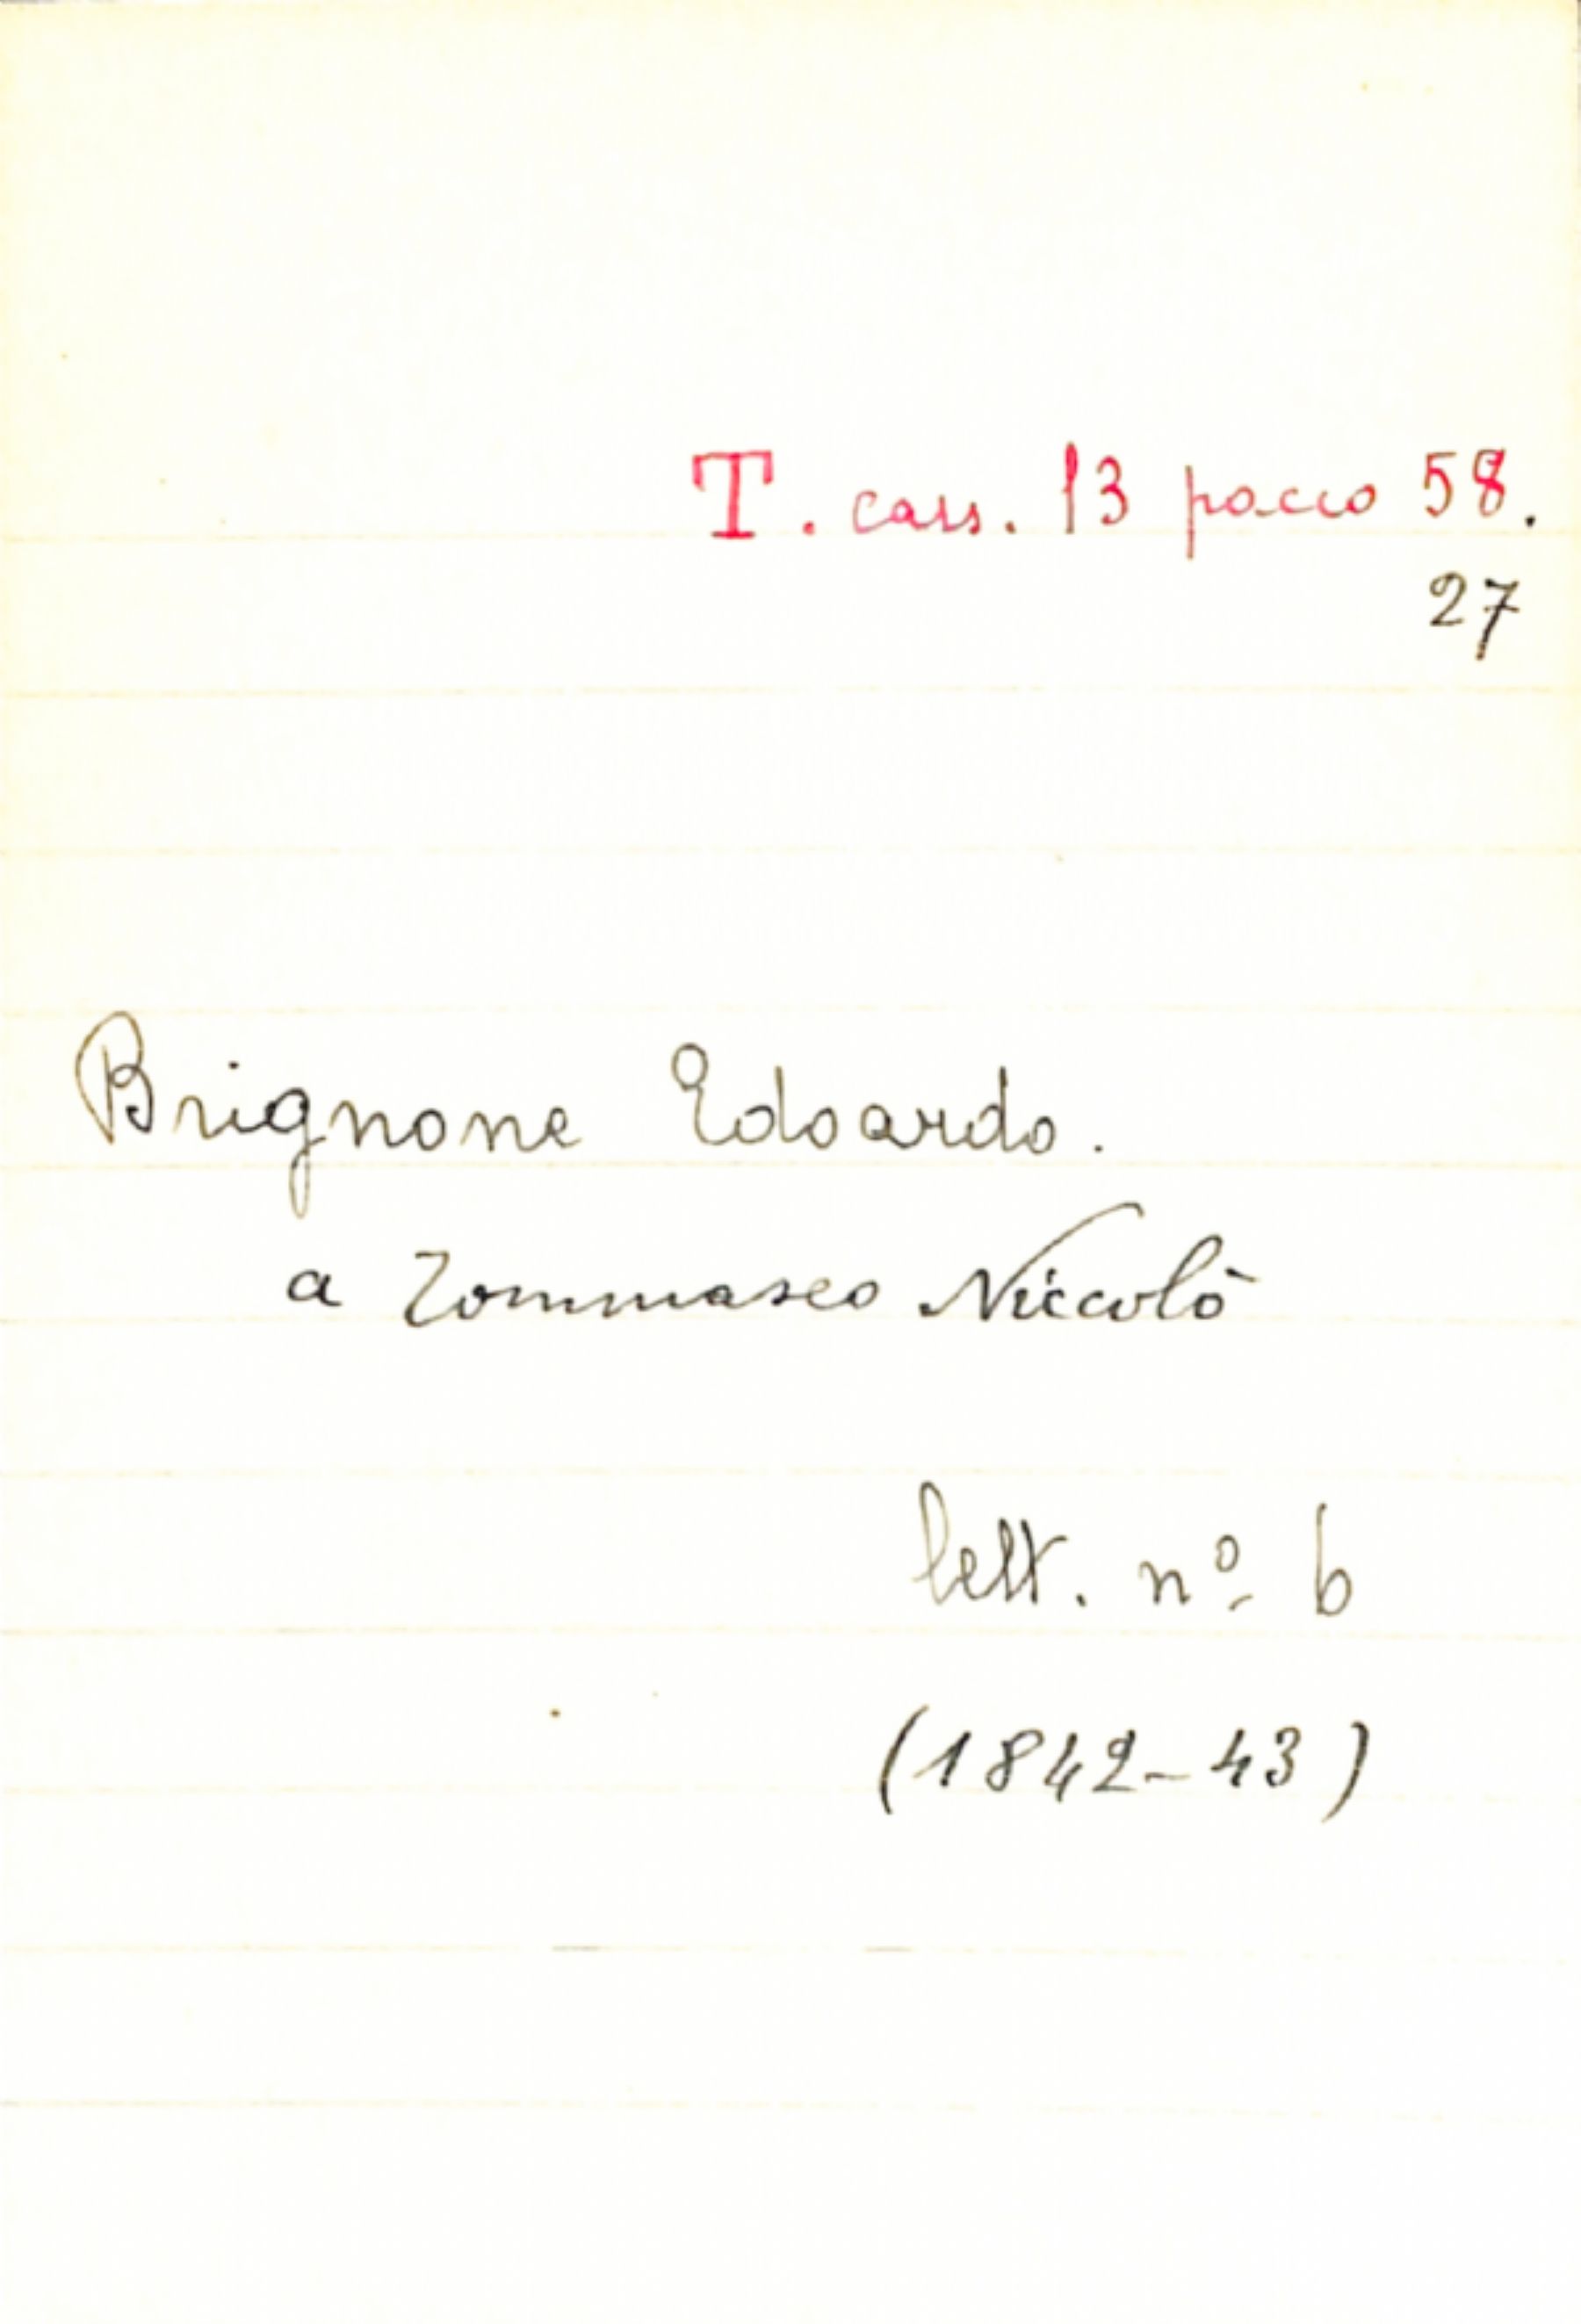 T. cass. 13 pacco 58.
27
Brignone Edoardo.
a Tommaseo Niccolò
lett. nº 6
(1842-43)